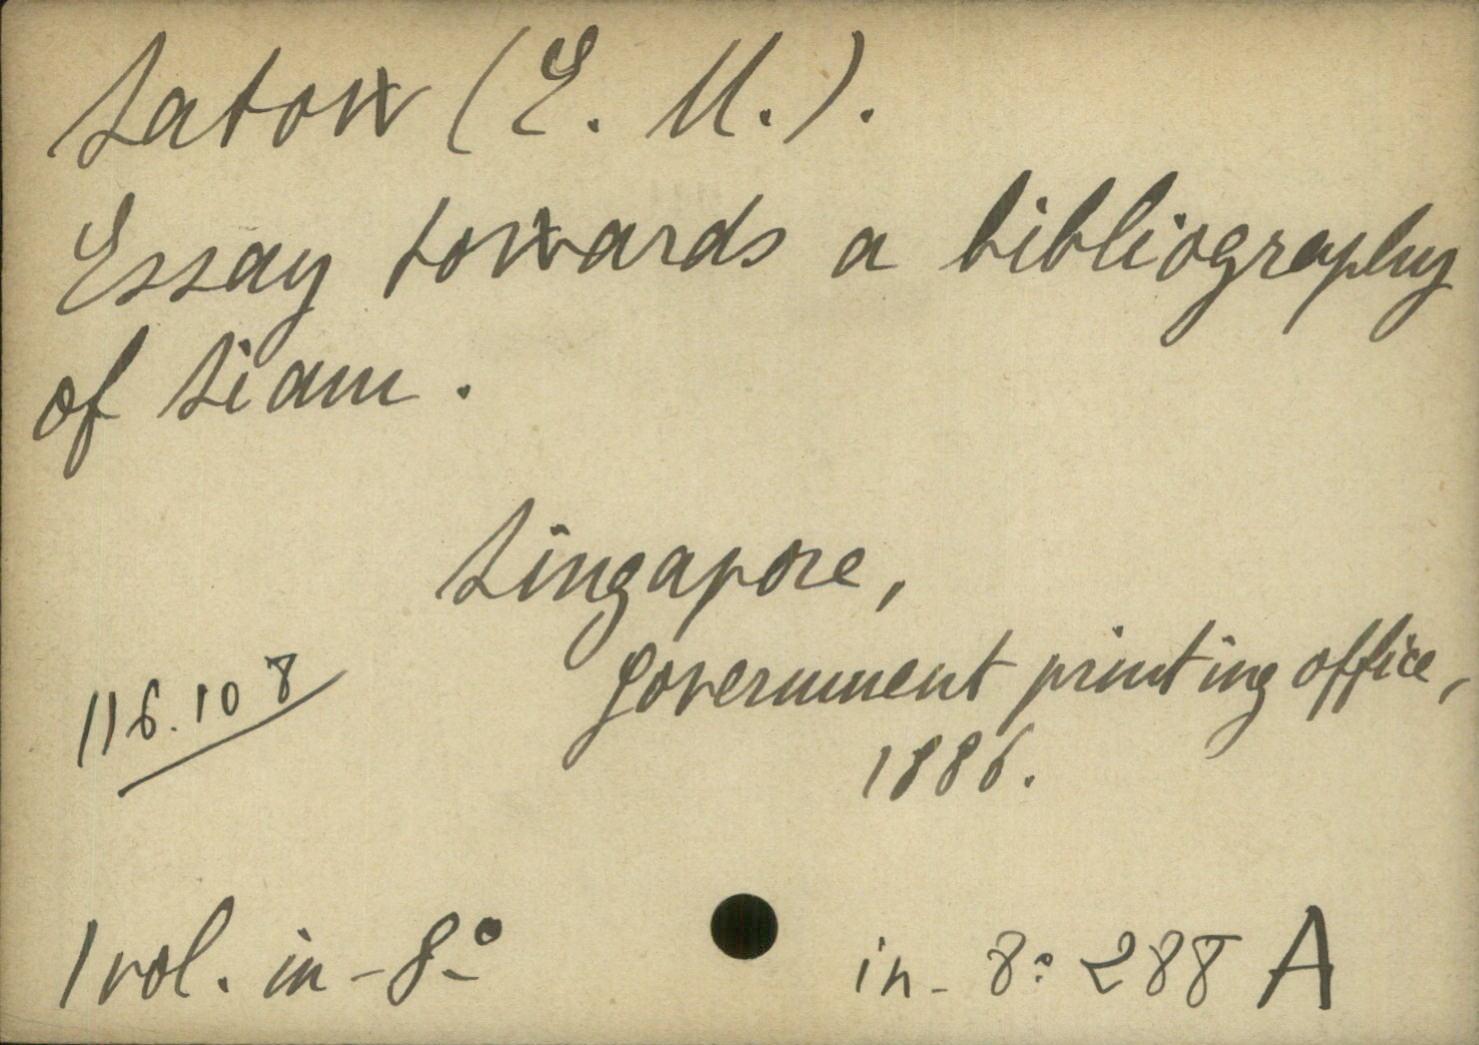 Satow (E. M.).
Essay towards a bibliography
of Siam.
Singapore,
Government printing office,
1886.
116.108
1 vol. in-8º
in-8º 288 A